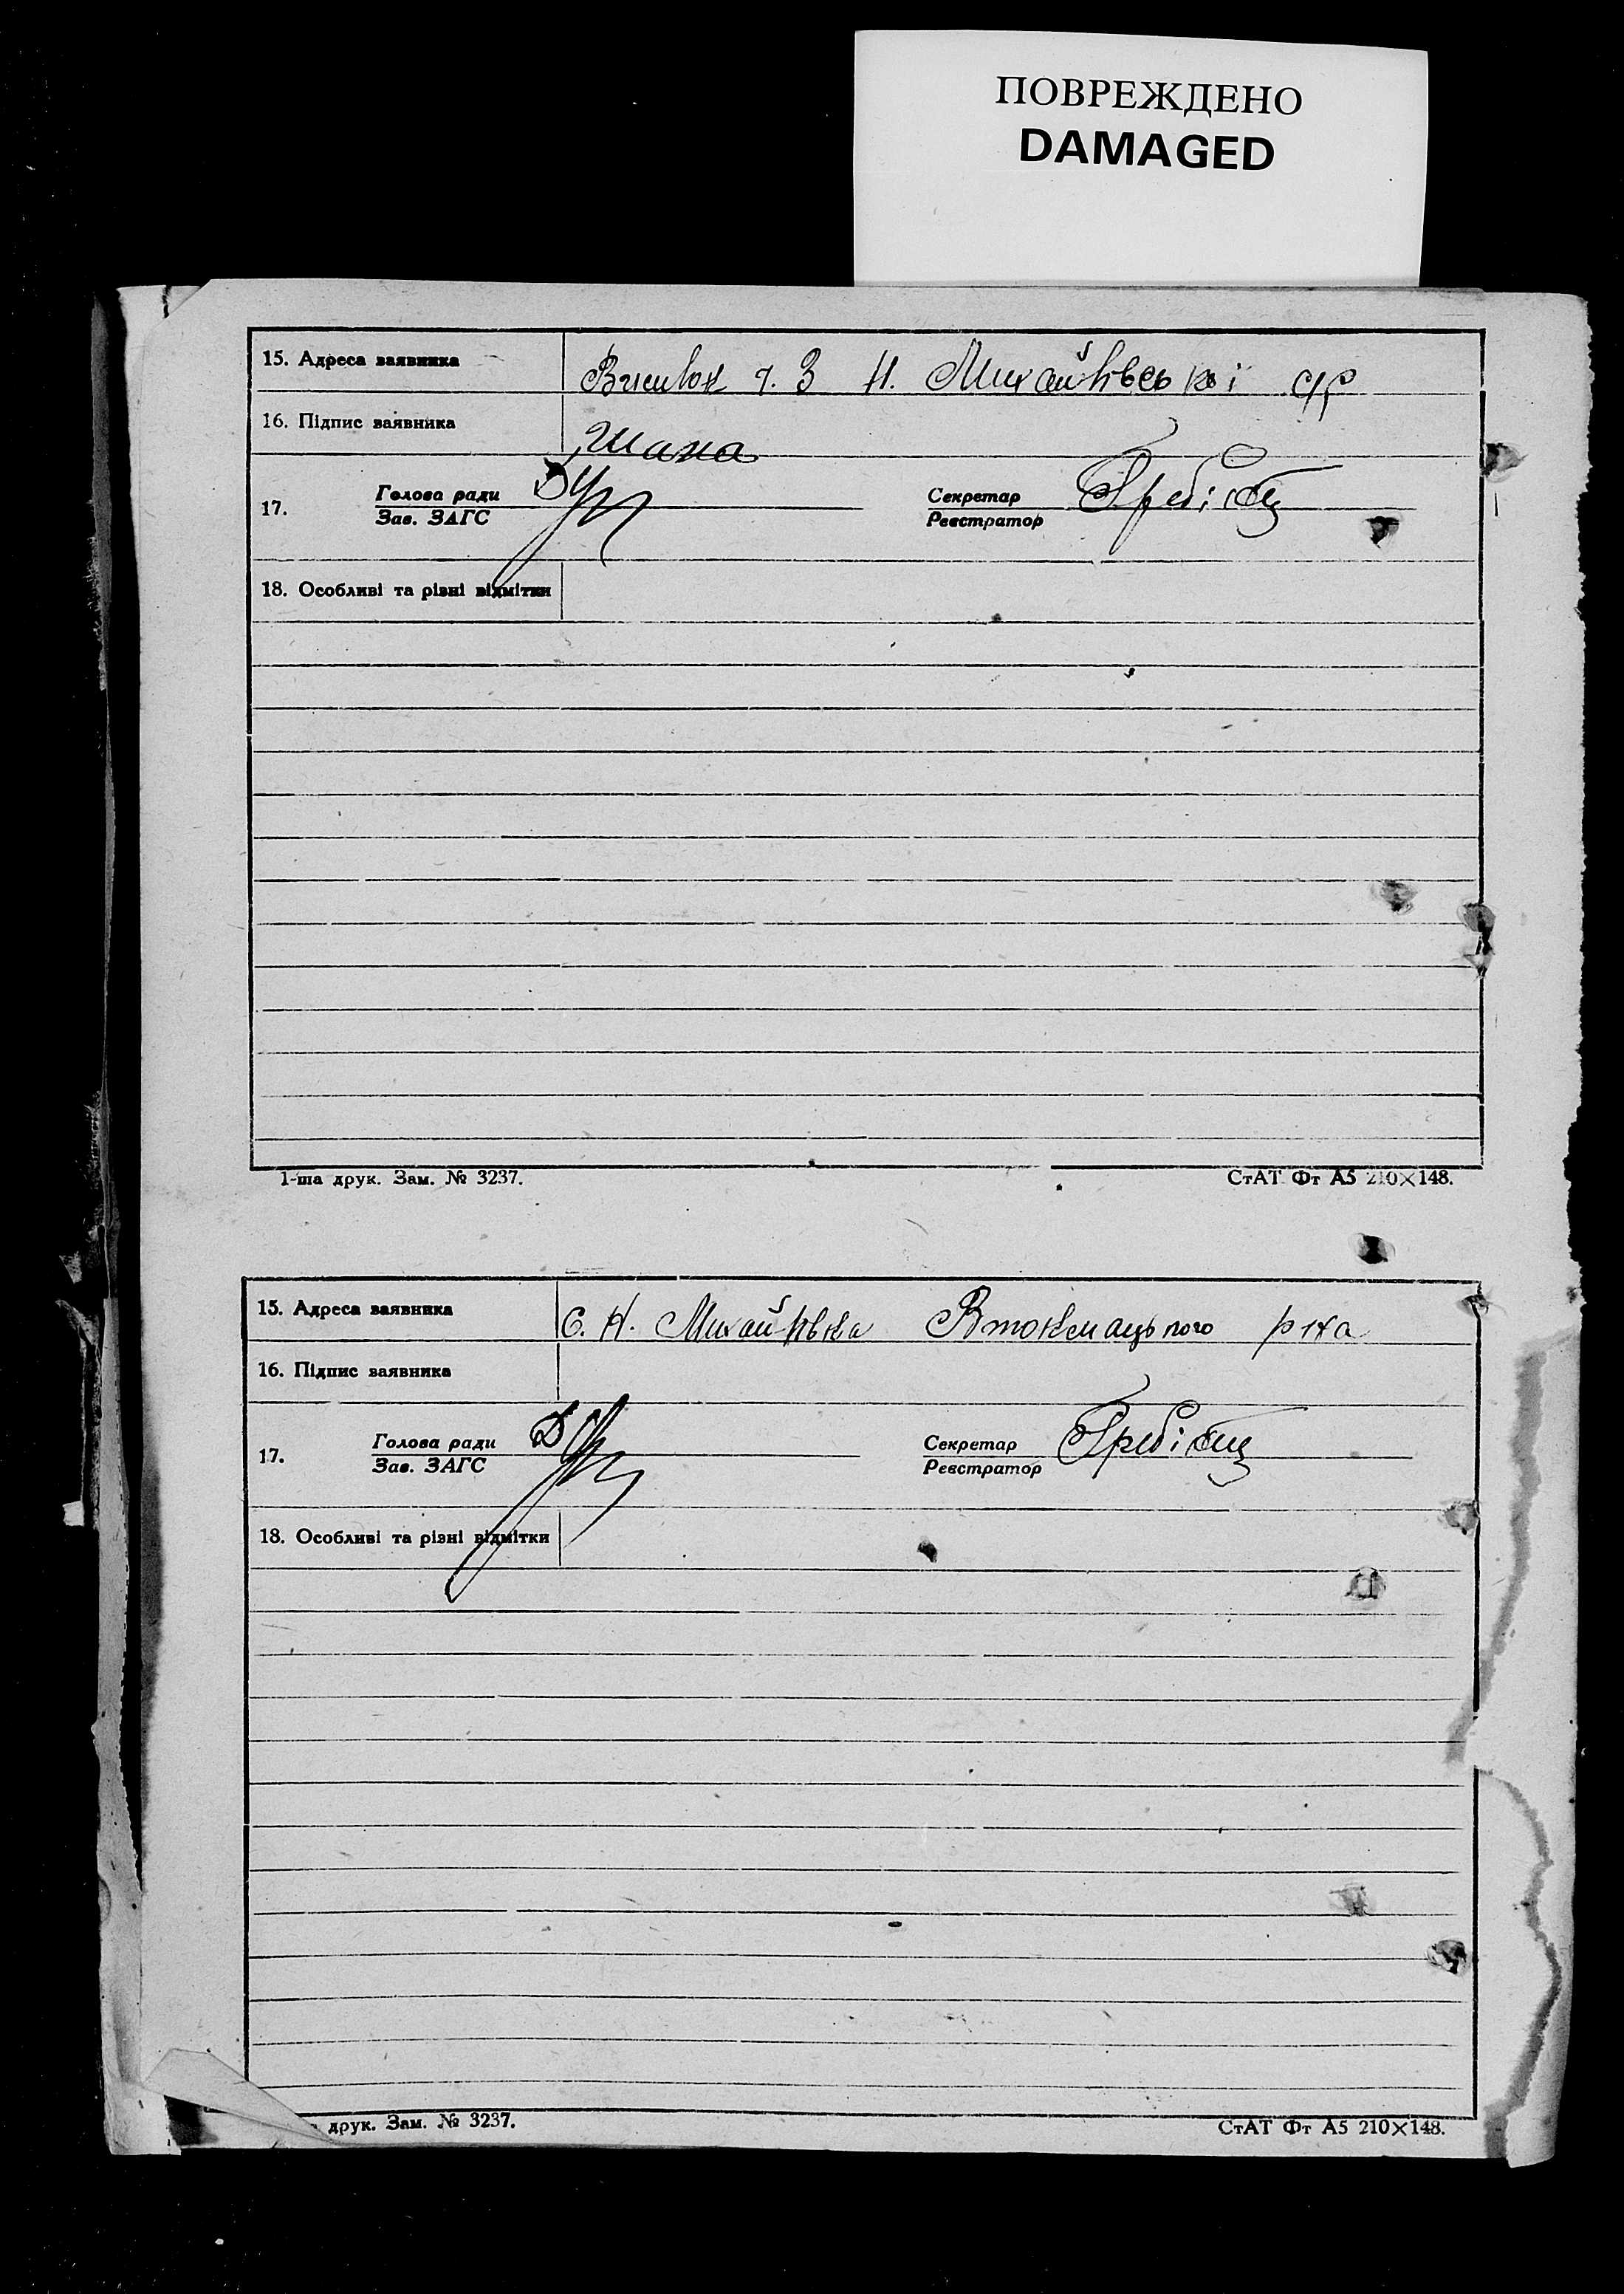 ПОВРЕЖДЕНО
DAMAGED
15. Адреса заявника
ч. 3 Н. Михайлівської с/р
16. Підпис заявника
17. Голова ради Секретар
Зав. ЗАГС Реєстратор
18. Особливі та різні відмітки
1-ша друк. Зам. № 3237. СтАТ Фт А5 210×148.
15. Адреса заявника С. Н. Михайлівка Втокмацького р-на
16. Підпис заявника
17. Голова ради Секретар
Зав. ЗАГС Реєстратор
18. Особливі та різні відмітки
друк. Зам. № 3237. СтАТ Фт А5 210×148.